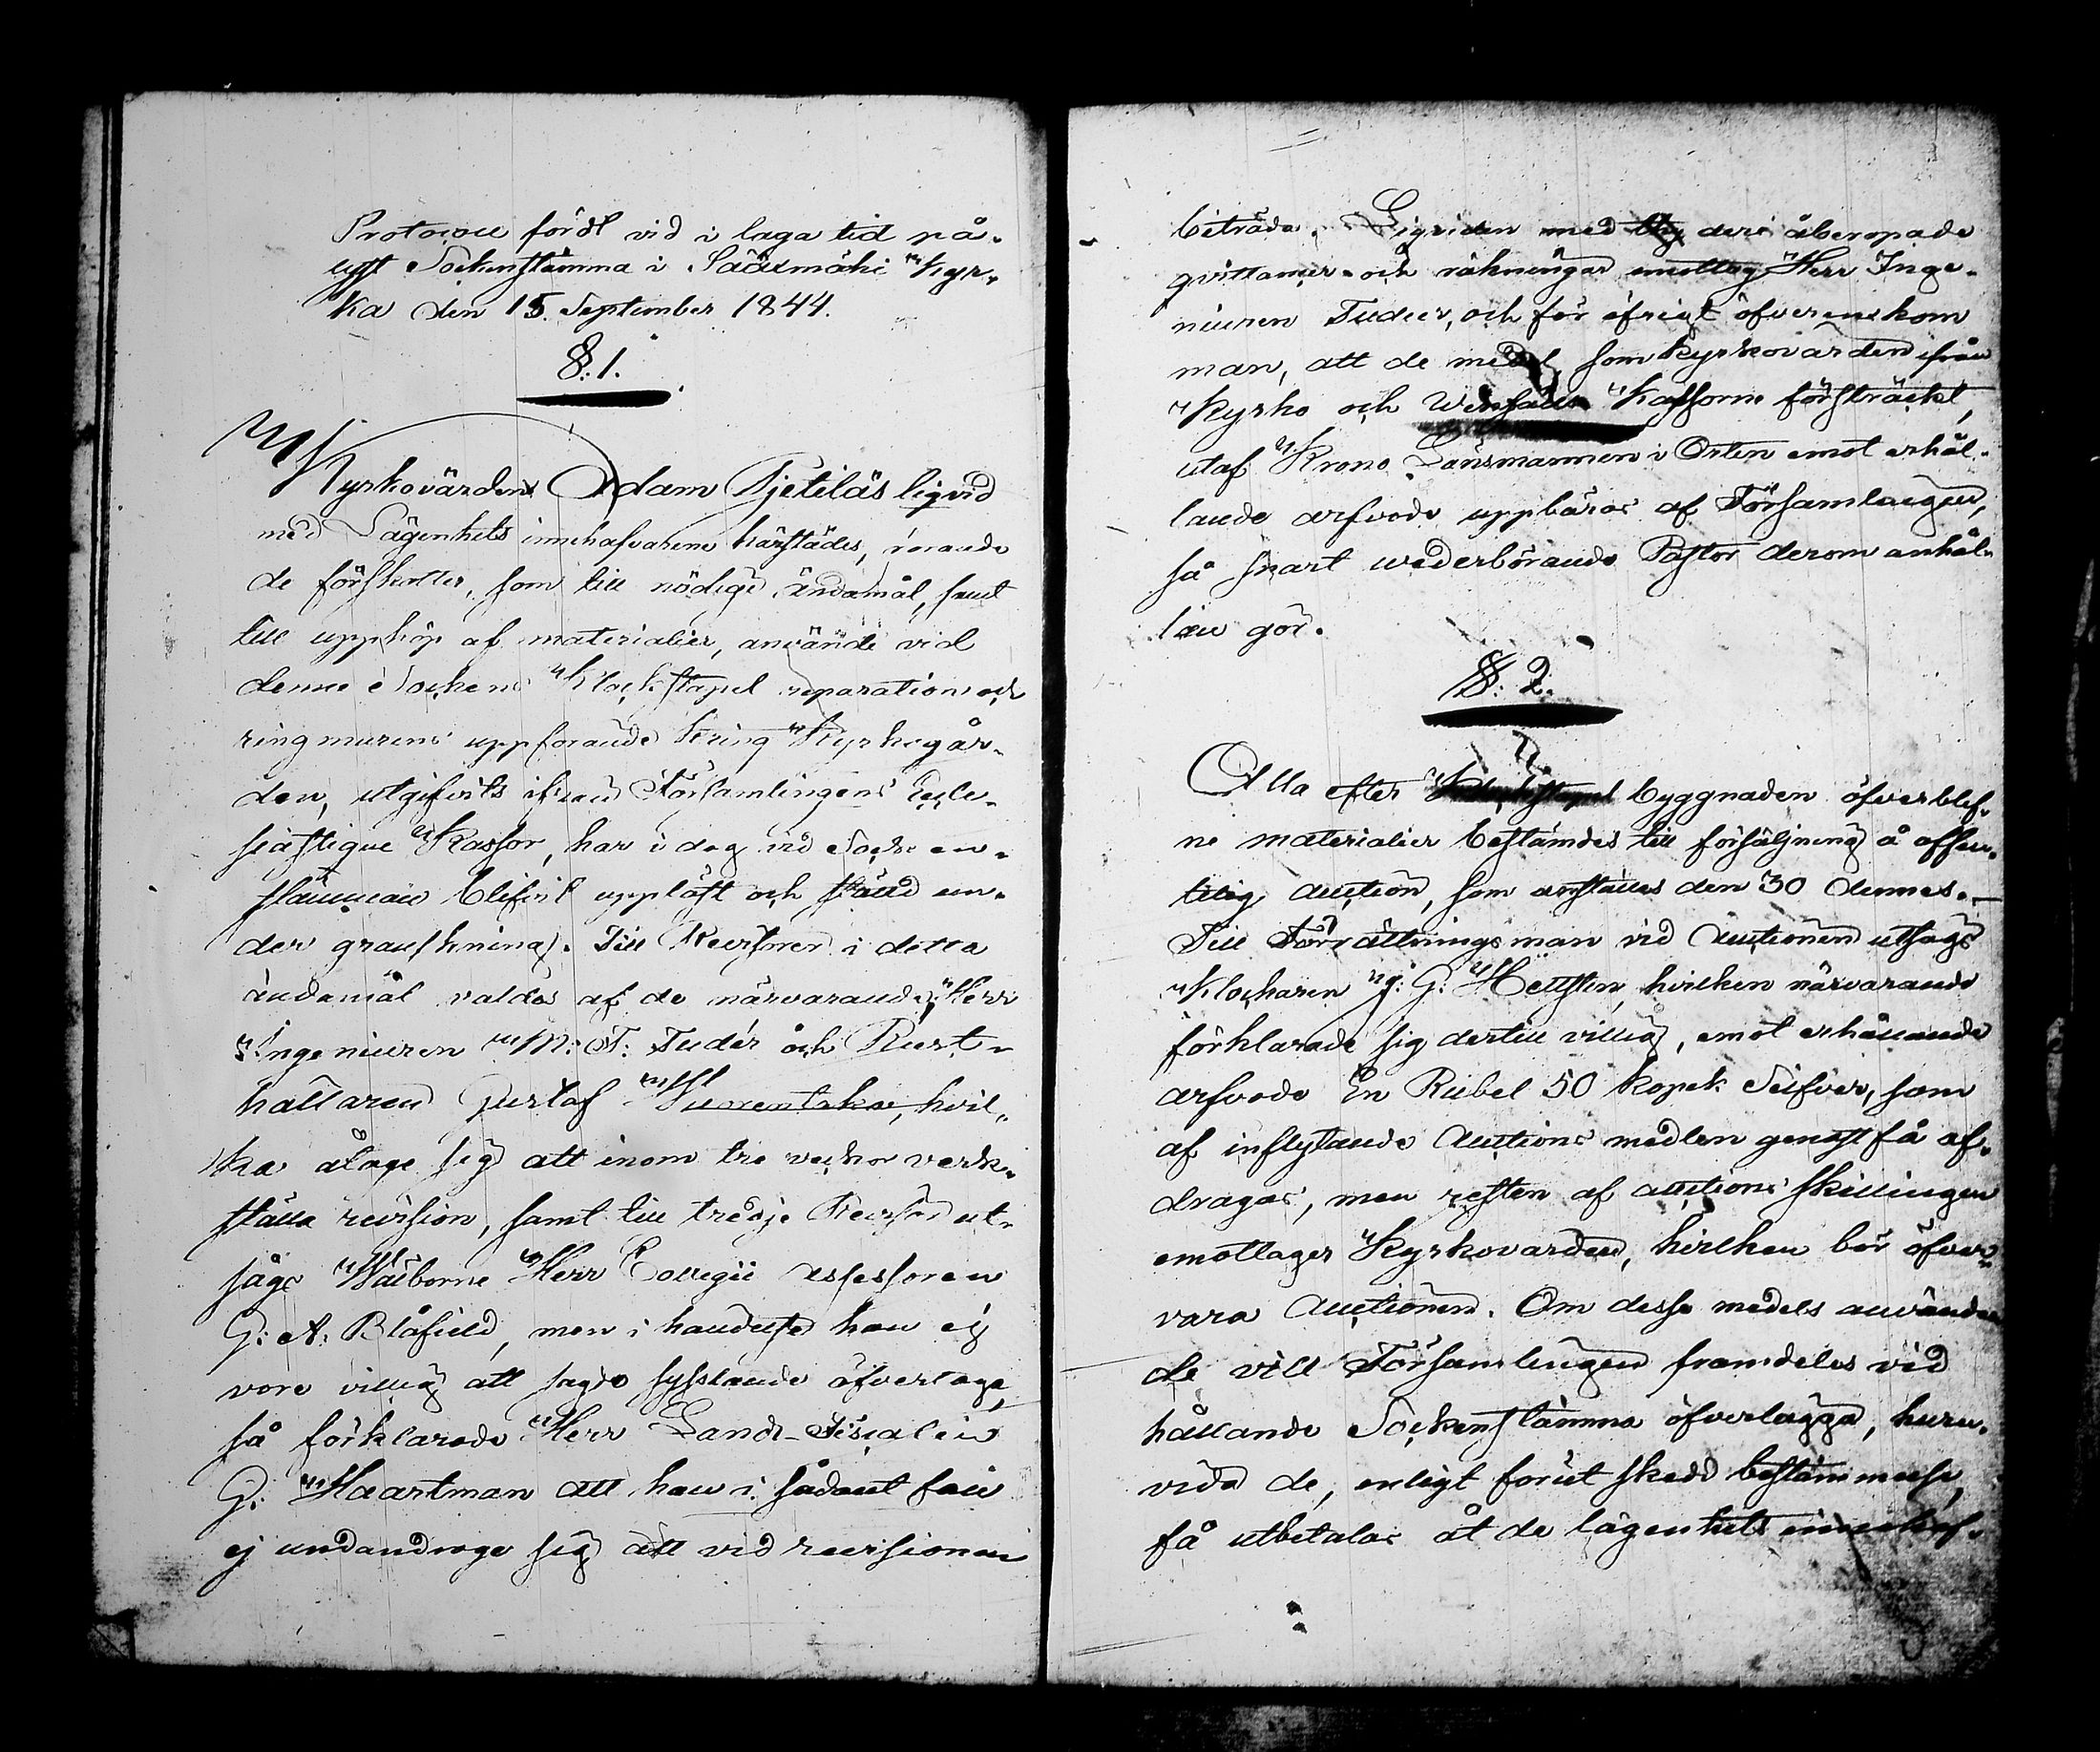 Protocoll fördt vid i laga tid på-
lyst Sockenstämma i Sääxmäki Kyr-
ka den 15 September 1844.
§. 1.
Kyrkovärden Adam Pjetiläs liqvid
med Lägenhets innehafvarene härstädes, rörande
de förskotter, som till nödige ändamål, samt
till uppköp af materialier, använde vid
denne Sockens Klockstapel reparation och
ringmurens uppförande kring Kyrkogår-
den, utgifvits ifrån Församlingens Eccle-
siastique Kassor, har i dag vid Socken-
stämman blifvit uppläst och ställd un-
der granskning. Till Revisorer i detta
ändamål valdes af de närvarande, Herr
Ingenieuren M: T: Tudér och Rust-
hållaren Gustaf Vuorentaka, hvil-
ka åtogo sig att inom tre veckor verk-
ställa revision, samt till tredje Revisor ut-
sågs Wälborne Herr Collegii Assessoren
G: A: Blåfield, men i händelse han ej
vore villig att sagde sysslande öfvertaga,
så förklarade Herr Lands-Fiscalen
G: Haartman att han i sådant fall
ej undandroge sig att vid revisionen
biträda. Liqviden med deri åberopade
qvittancer och räkningar emottog Herr Inge-
nieuren Tudeer, och för öfrigt öfverenskom
man, att de medel, som Kyrkovärden ifrån
Kyrko och Kassorne försträckt,
utaf Krono Länsmannen i Orten emot erhål-
lande arfvode uppbäras af Församlingen,
så snart wederbörande Pastor derom anhål-
lan gör.
§. 2.
Alla efter byggnaden öfverblef-
ne materialier bestämdes till försäljning å offen-
telig Auction, som anställes den 30 dennes.
Till Förrättningsman vid Auctionen utsågs
Klockaren J: G: Hellsten, hvilken närvarande
förklarade sig dertill villig, emot erhållande
arfvode En Rubel 50 Kopek Silfver, som
af inflytande Auctions medlen genast få af-
dragas, men resten af auctions skillingen
emottager Kyrkovärden, hvilken bör öfver-
vara Auctionen. Om desse medels använda[n]-
de vill Församlingen framdeles vid
hållande Sockenstämma öfverlägga, huru-
vida de, enligt förut skedd bestämmelse,
få utbetalas åt de lägenhets innehaf-